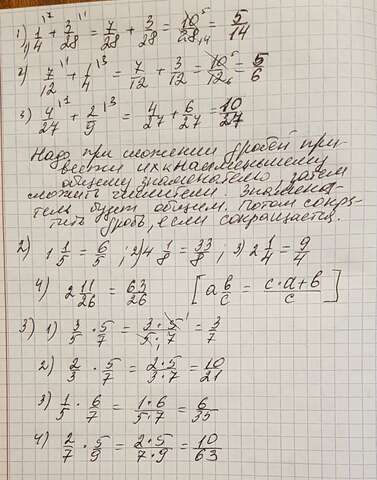 1) 1/4 + 3/28 = 7/28 + 3/28 = 10/28 = 5/14
2) 7/12 + 1/4 = 7/12 + 3/12 = 10/12 = 5/6
3) 4/27 + 2/9 = 4/27 + 6/27 = 10/27
Надо при сложении дробей при-
вести их к наименьшему
общему знаменателю, затем
сложить числители знамена-
тель будет общим. Потом сокра-
тить дробь, если сокращается.
2) 1 1/5 = 6/5; 2) 4 1/8 = 33/8; 3) 2 1/4 = 9/4
4) 2 11/26 = 63/26 [a b/c = c·a+b/c]
3) 1) 3/5 · 5/7 = 3·5/5·7 = 3/7
2) 2/3 · 5/7 = 2·5/3·7 = 10/21
3) 1/5 · 6/7 = 1·6/5·7 = 6/35
4) 2/7 · 5/9 = 2·5/7·9 = 10/63